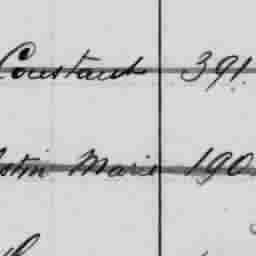 Constant 391
stin Marie 190